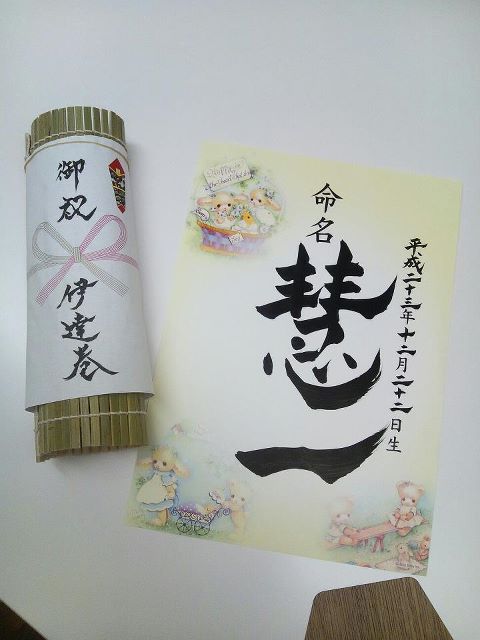 御祝
伊達巻
命名
慧一
平成二十三年十二月二十二日生